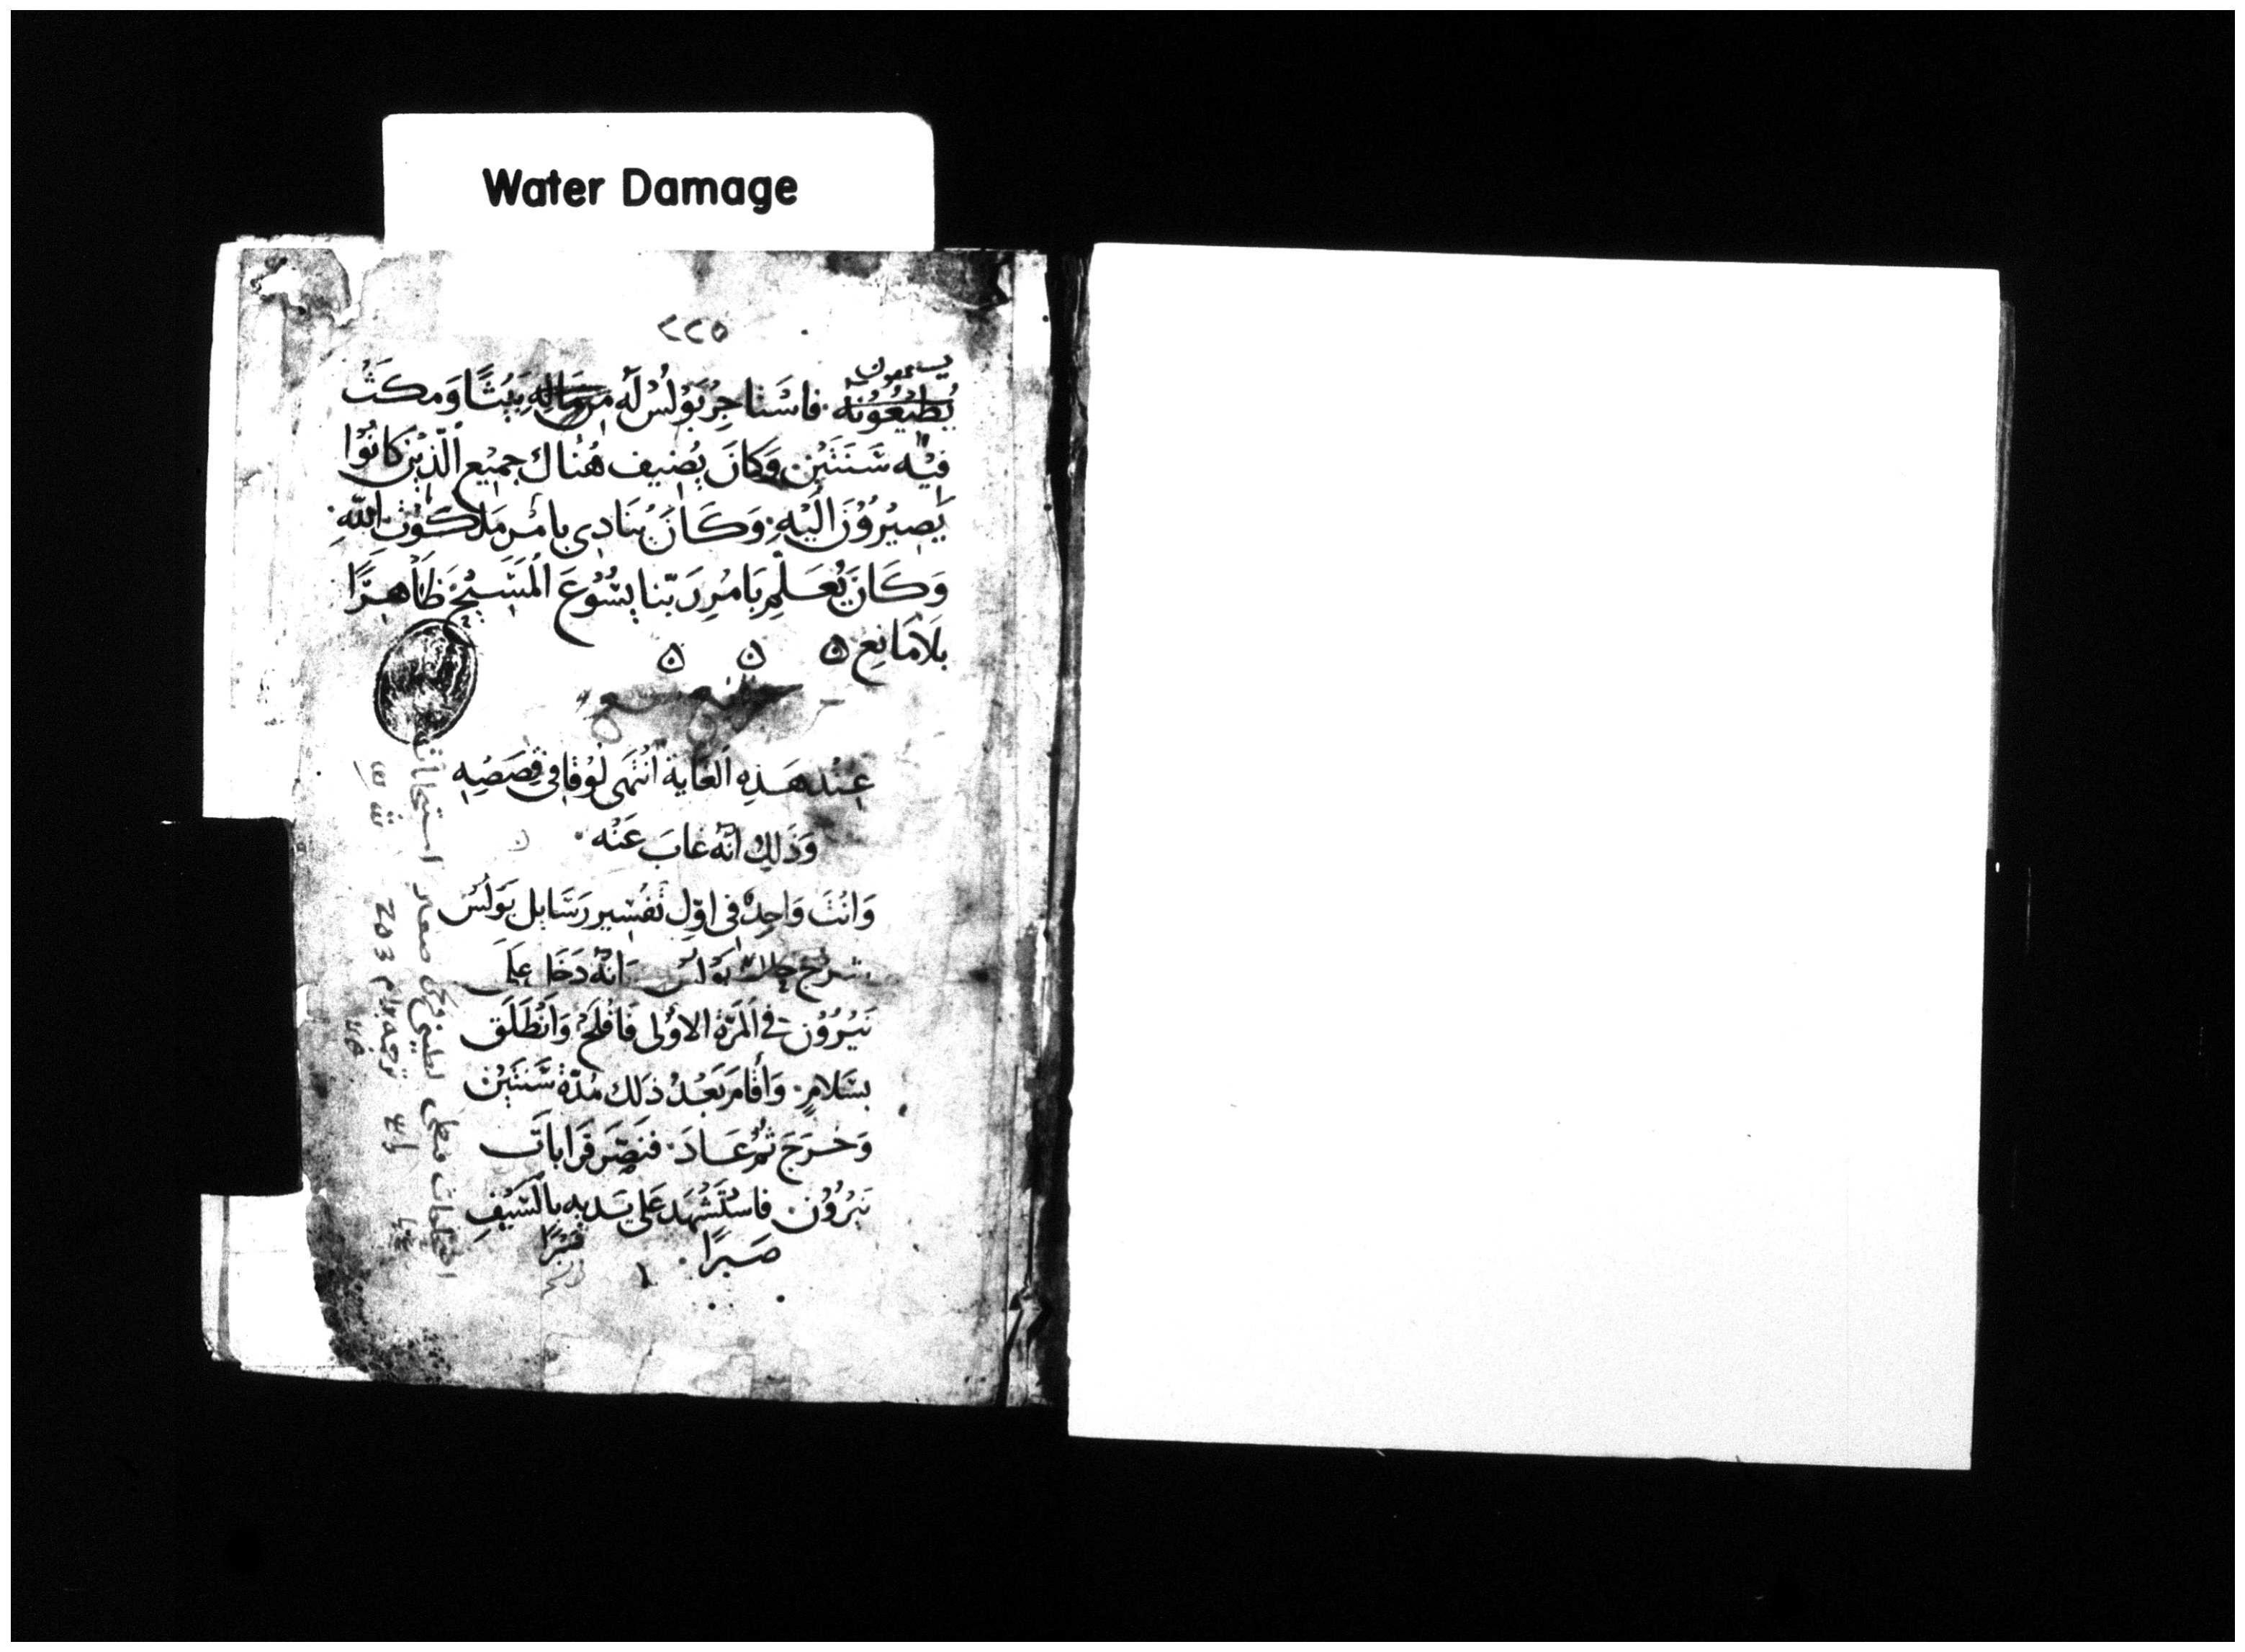 Water Damage
٢٢٥
يسمعون
يُطيْعُوْنه. فاسْتاجِرْ بَوْلُسْ لَه مِن مَالِهِ بَيْتًا وَمكَثْ
فيْه سَنَتَيْن وَكانَ يُضيف هُنْاك جميْع الّذيْن كانُوْا
يَصيْرُوْنَ الَيْهِ. وَكَانَ يُنَادي بامْر مَلكوْت اللّهِ.
وَكَانَ يُعَلّمِ بَامْرِ رَبّنا يسُوْعَ المَسَيْحْ ظَاهِرًا
بلَامَانِع ۵ ۵ ۵
عِنْد هَذِهِ الغَاية انْتَهَى لُوْقا في قِصَصِهِ
وَذَلِكْ انّهُ غابَ عَنْه.
وَانْتَ وَاجِدهُ في اوّلِ تَفْسْير رَسَايل بَوْلُسْ
شرْح حال بَوْلسْ انّه دَخَل عَلَى
نَيْرُوْن في المَرّة الاوْلى فَافْلَحْ وَانْطَلَق
بسَلامٍ. وَأقَامَ بَعْدْ ذلك مُدّة سَنَتَيْن
وَخرَجَ ثمّ عَادَ. فنَصّرَ قَرَابات
نَيْرُوْن. فاسْتَشْهَد عَلى يَديه بالسّيْفِ
صَبرًا. قسْرًا